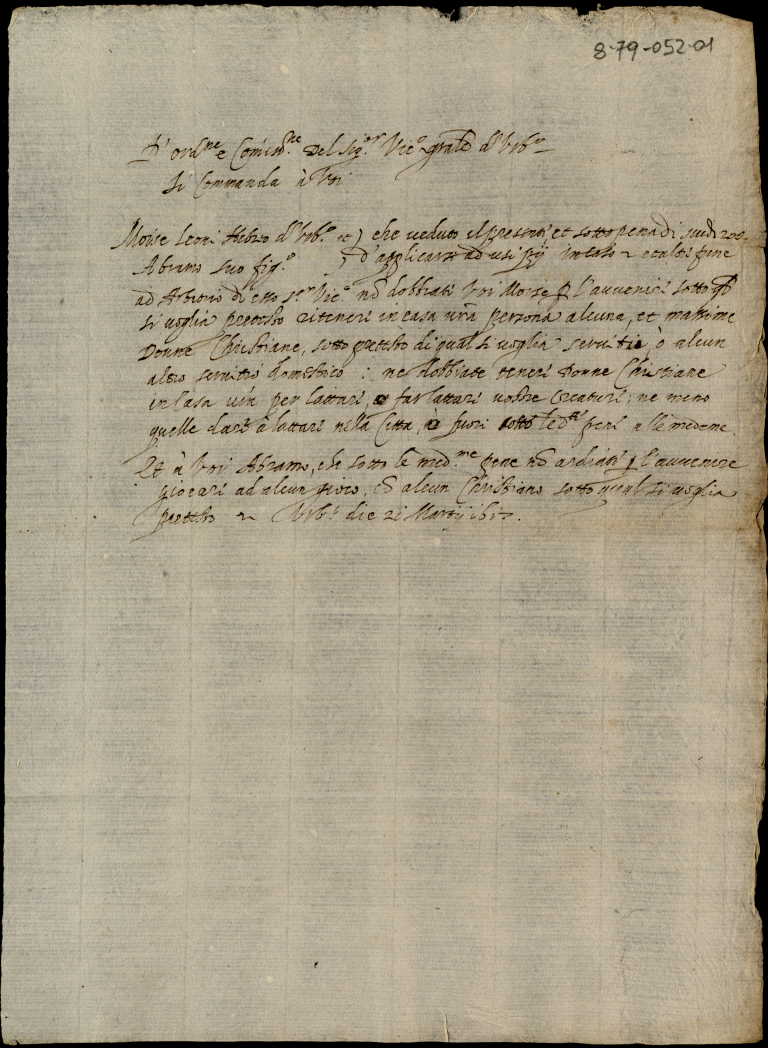 8-79-052-01
D'ord.ne e Comiss.ne Del Sig.r Vic.o gnale d'Urb.o
Si Commanda à Voi
Moise Leoni Hebreo d'Urb.o et ) che veduto il presente, et sotto pena di scudi 200
Abramo suo fig.o ) d'applicarsi ad usi pij et altre pene
ad Arbitrio di esso S.r Vic.o nō dobbiate Voi Moise p l'avvenire sotto
si voglia pretesto ritenere in casa vrã persona alcuna, et massime
Donne Christiane, sotto pretesto di qual si voglia servitio ò alcun
altro servitio domestico : ne dobbiate tenere Donne Christiane
in Casa vrã per lattare, ò far lattare vostre creature, ne meno
quelle dare à lattare nella Citta, ò fuori sotto le d.e pene medeme.
Et à Voi Abramo, che sotto le med.me pene nō ardiate p l'avvenire
giocare ad alcun gioco, cō alcun Christiano sotto qual si voglia
pretesto Urb.i die 21 Martij